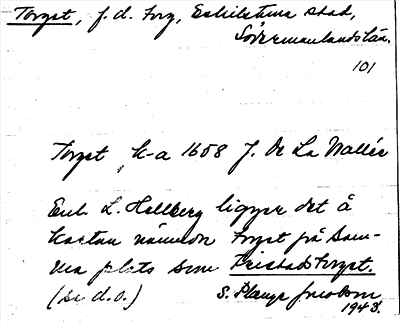 Torget, f.d. torg, Eskilstuna stad,
Södermanlands län.
101
Torget k-a 1658 J. De La Vallée
Enl. L. Hellberg ligger det å
kartan nämnda torget på sam-
ma plats som Fristadstorget.
(se d.o.) S. Plange Jacobson
1948.